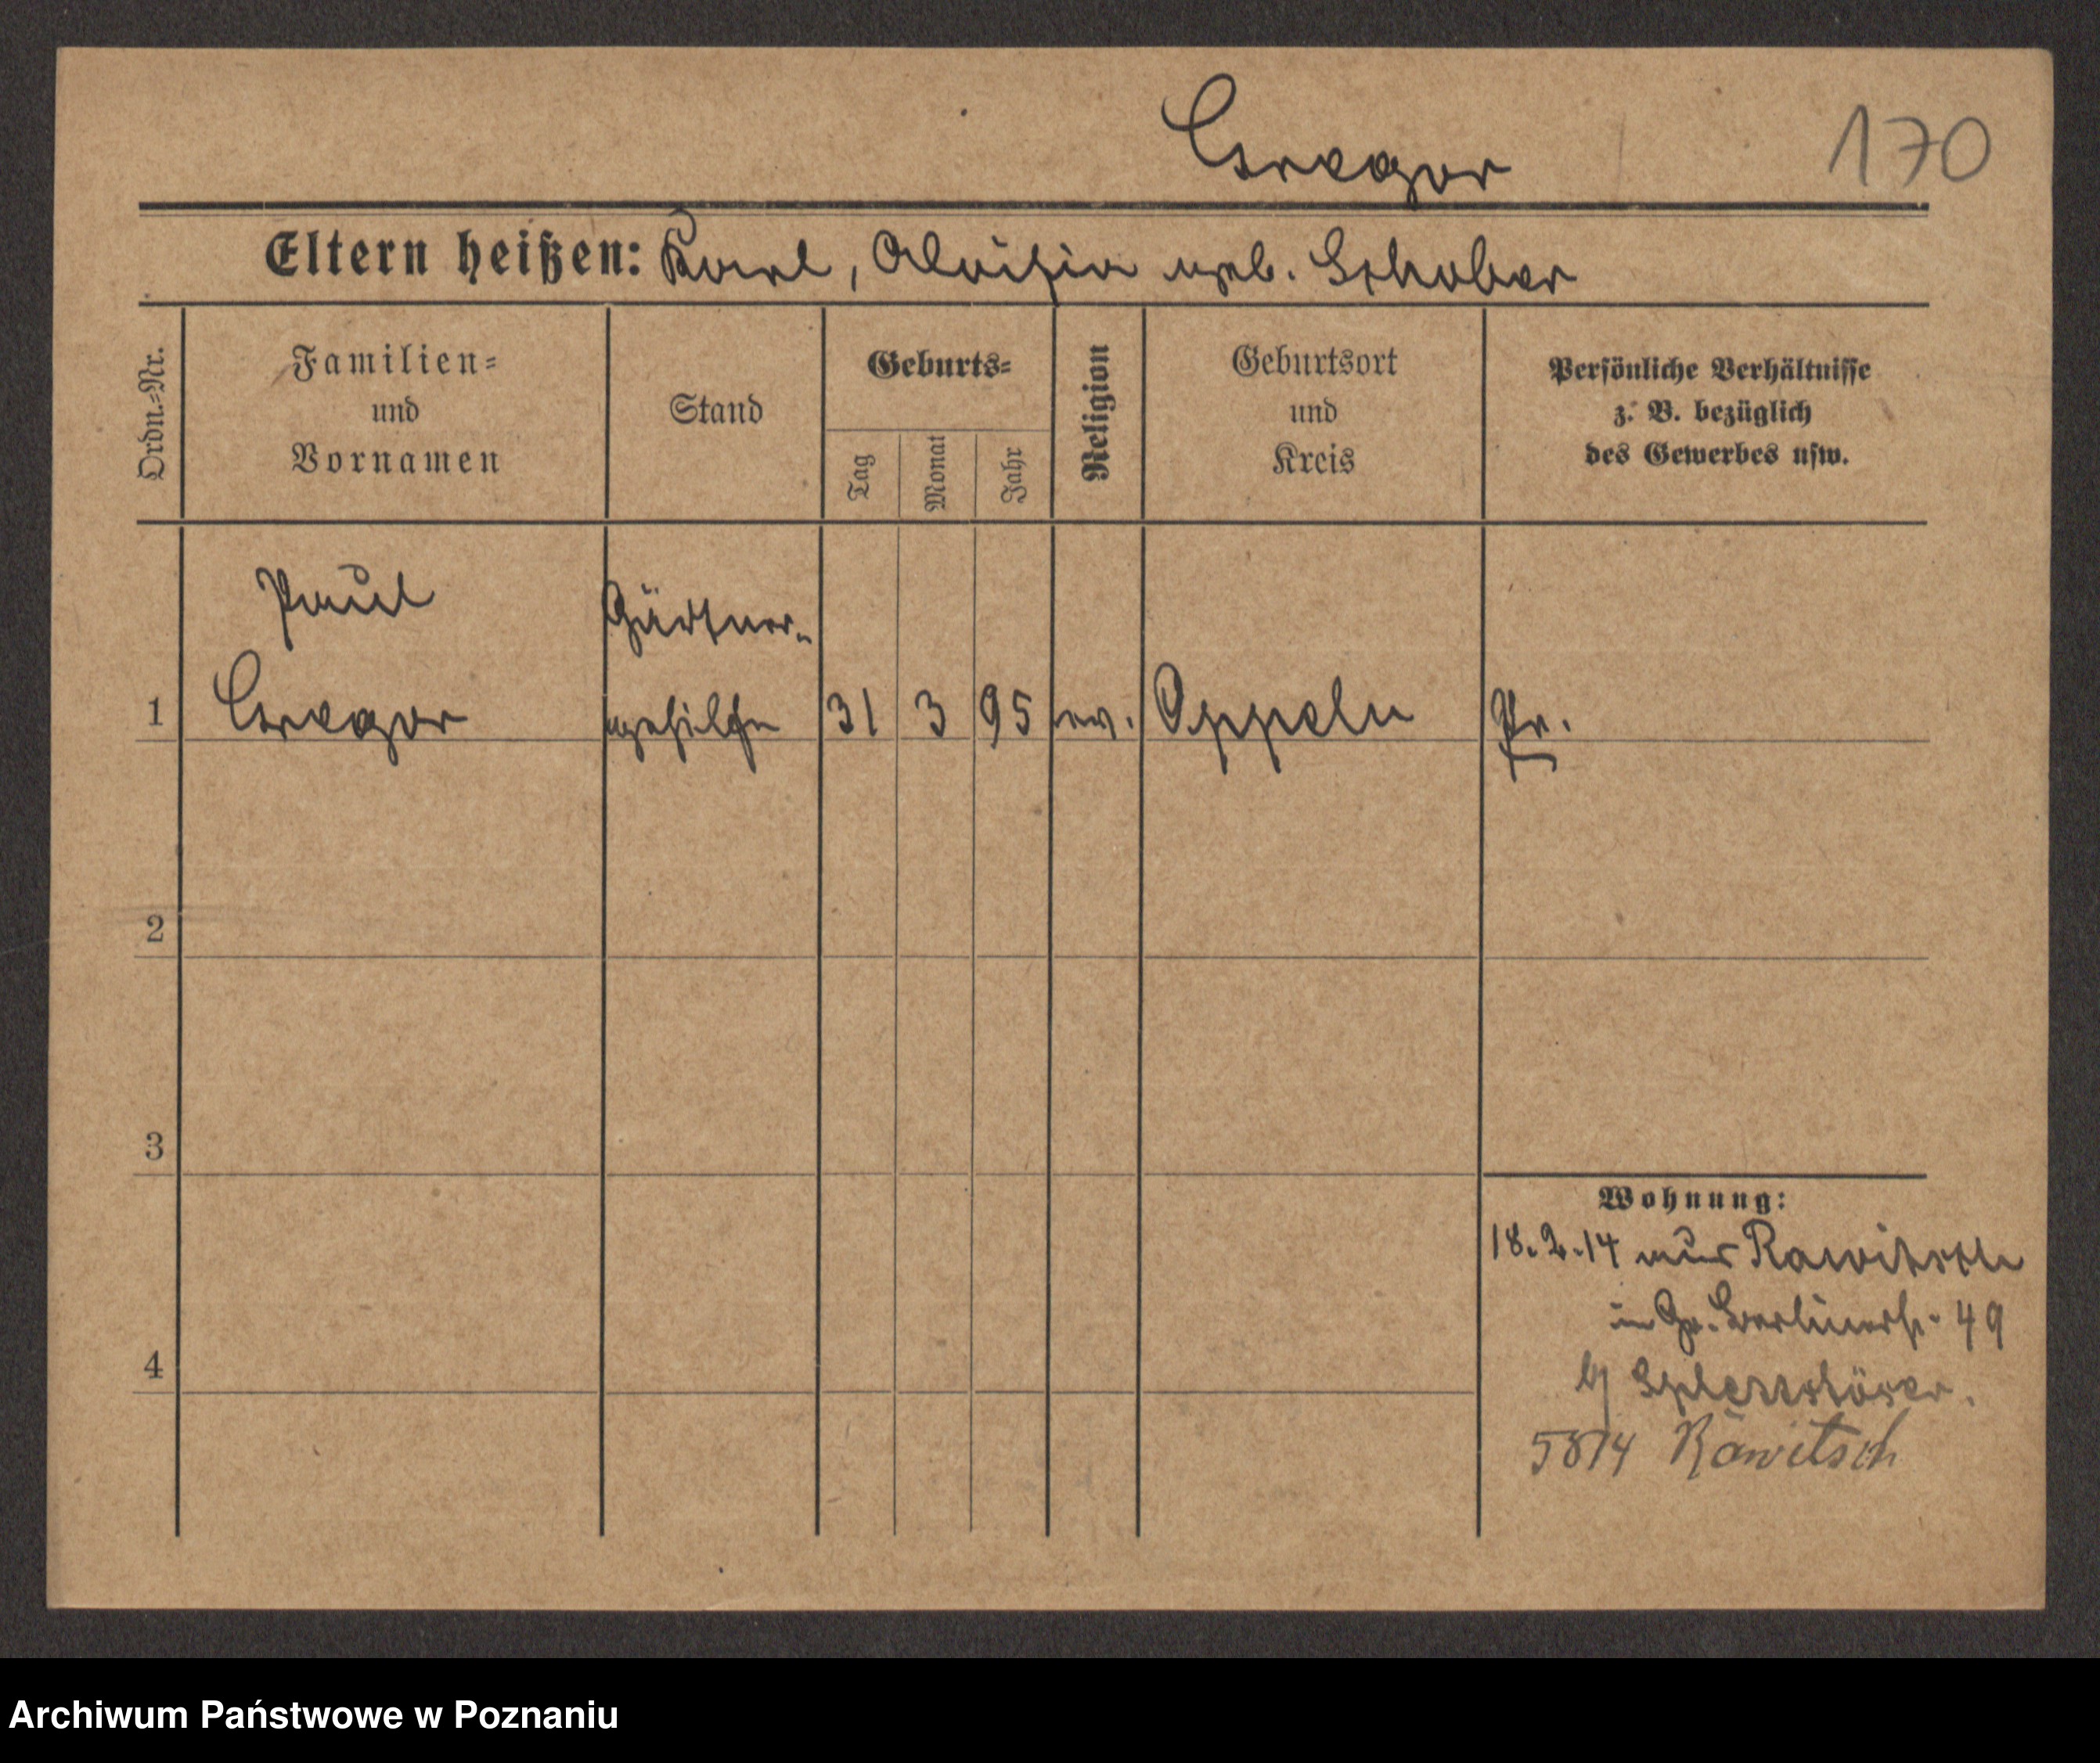 Gregor
170
Eltern heißen: Karl, Aloisia geb. Schober
Ordn.-Nr.
Familien-
und
Vornamen
Stand
Geburts-
Tag
Monat
Jahr
Religion
Geburtsort
und
Kreis
Persönliche Verhältnisse
z. B. bezüglich
des Gewerbes usw.
Paul
Gärtner-
1 Gregor gehilfe 31 3 95 ev. Oppeln Pr.
2
3
4
Wohnung:
18.2.14 aus Rawitsch
in Gr. Berlinerstr. 49
b/
5814 Rawitsch
Archiwum Państwowe w Poznaniu